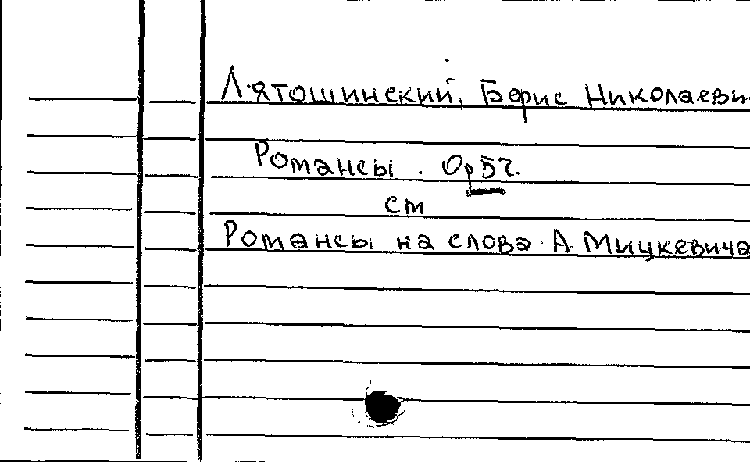 Лятошинский, Борис Николаеви
Романсы. Op 57.
см
Романсы на слова А. Мицкевича